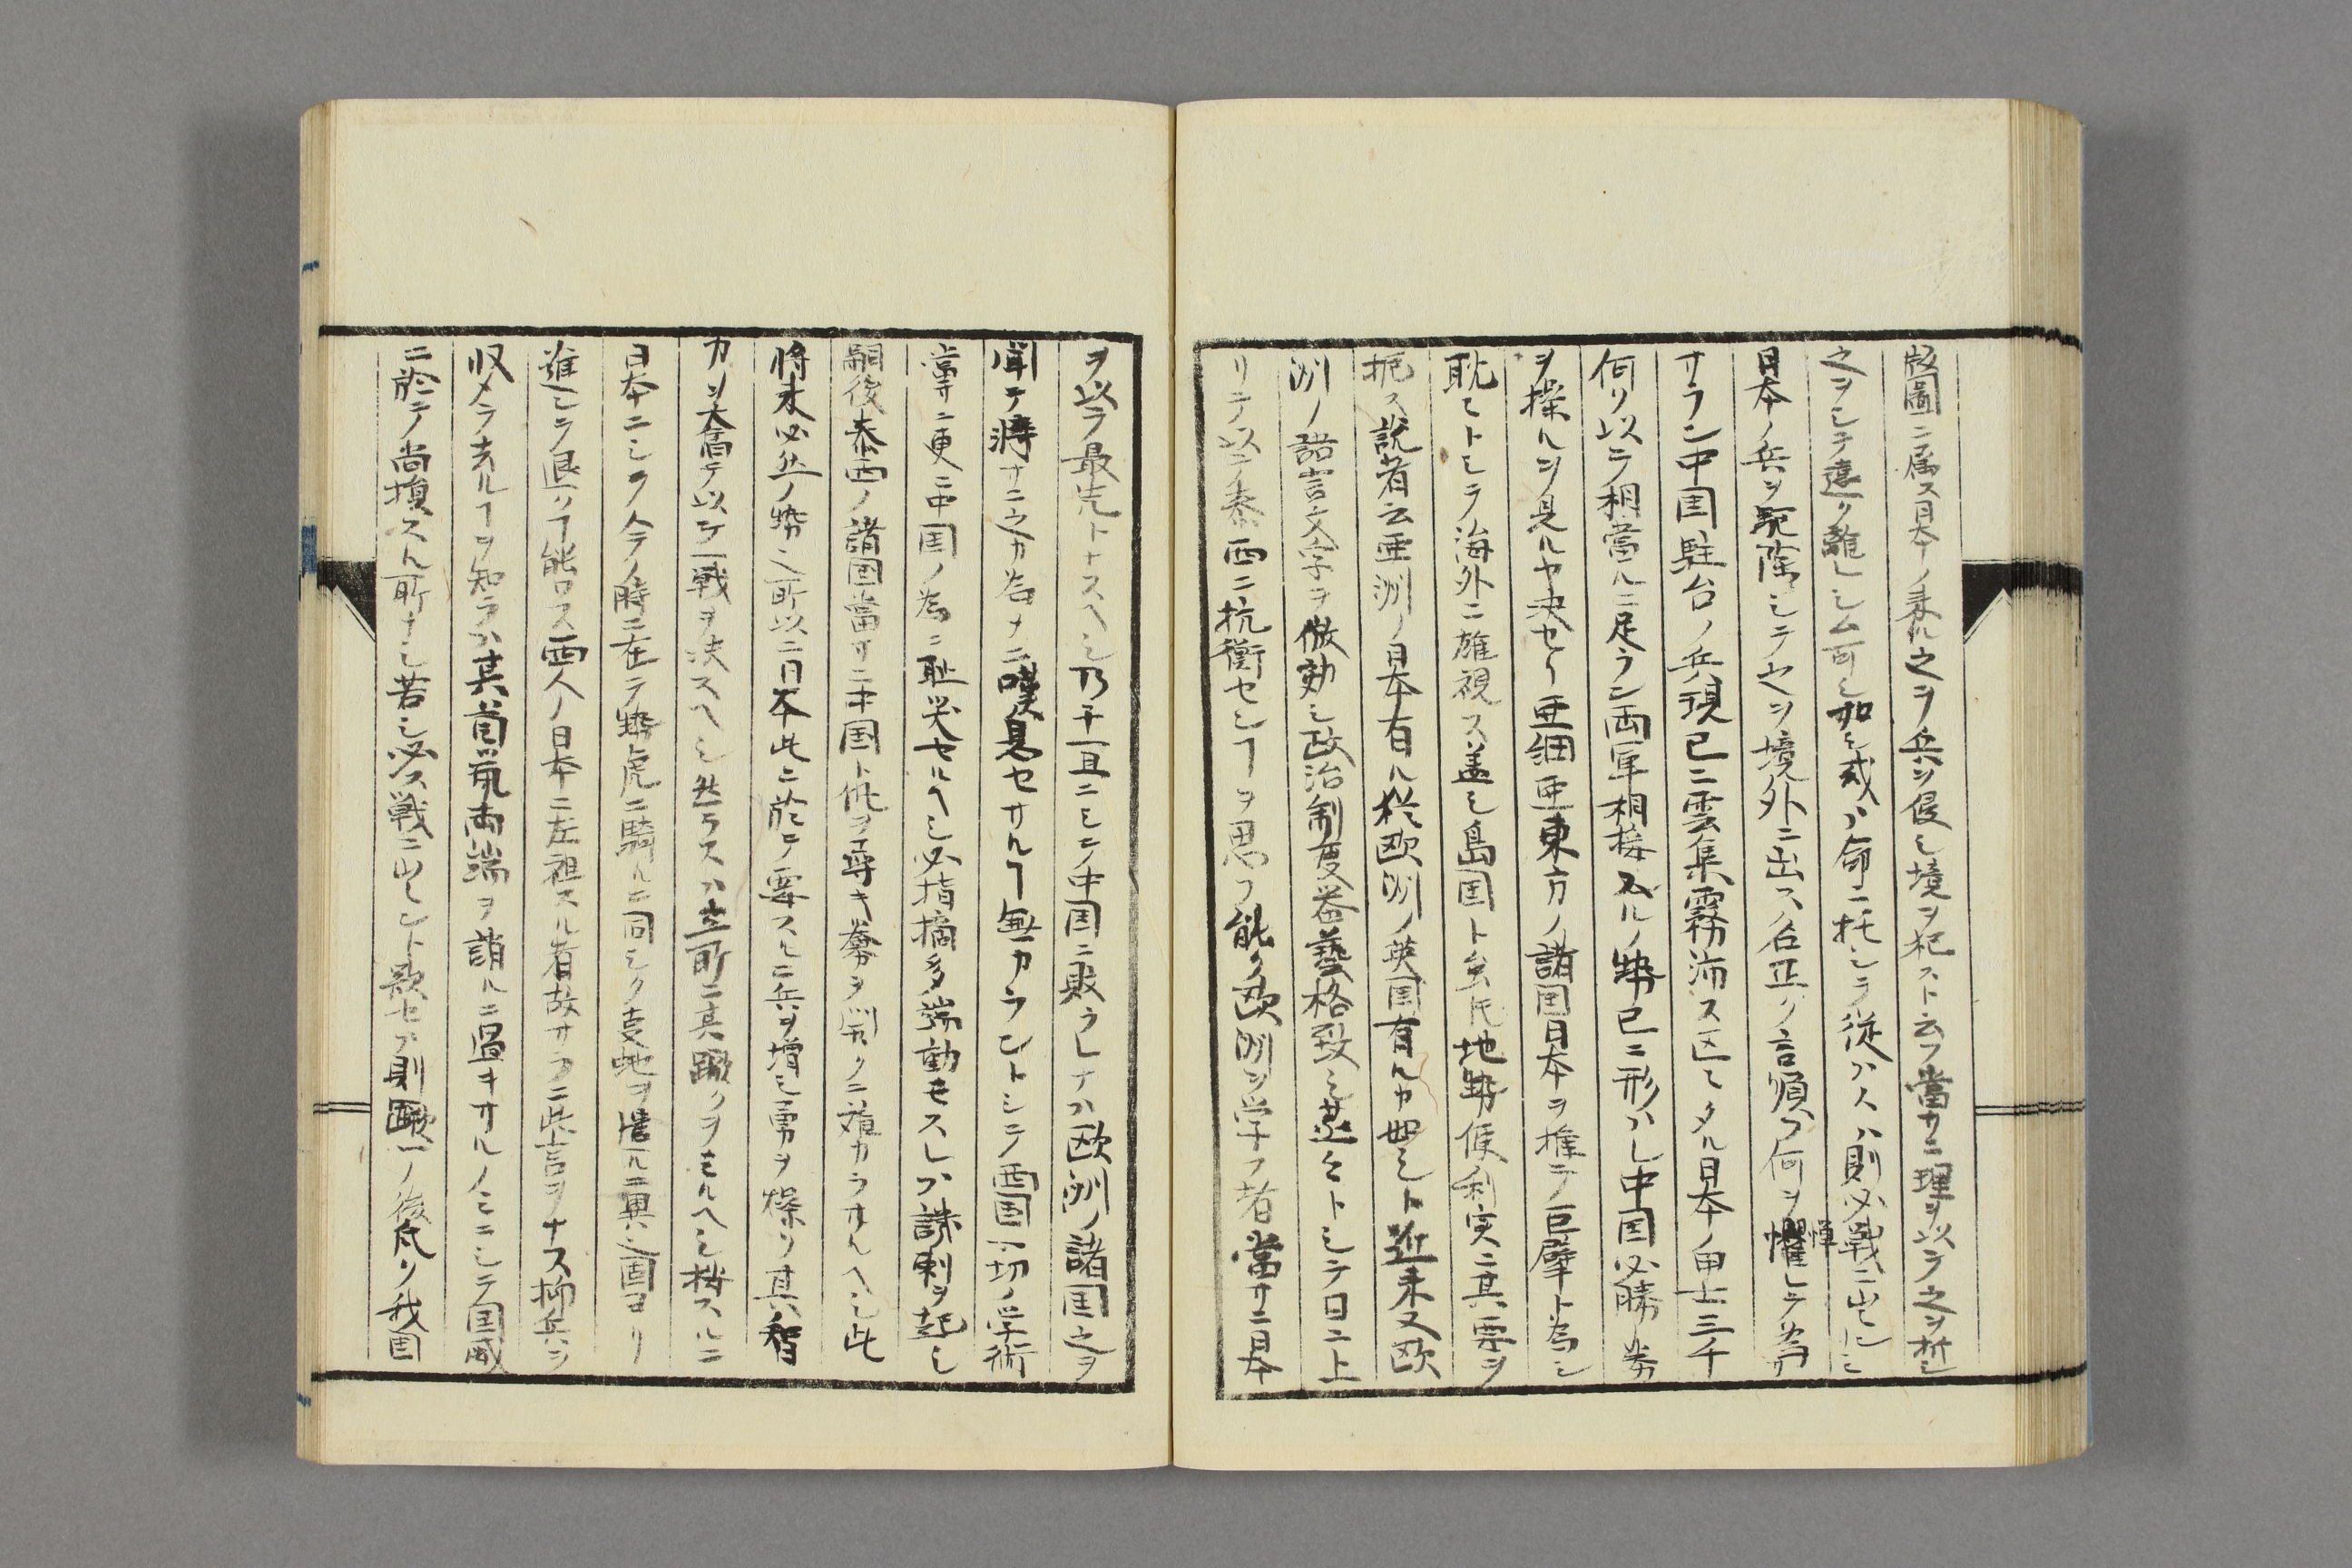 版圖ニ属ス日本ノ来ル之ヲ兵ヲ侵シ境ヲ犯スト云フ當サニ理ヲ以テ之ヲ折シ
之ヲシテ遠ク離レシム可シ如シ或ハ命ニ托シテ従ハスハ則必戦ニ出ヒシ
日本ノ兵ヲ駆除シテ之ヲ境外ニ出ス名正ク言順フ何ヲ憚懼シテ為サ
サラン中国駐台ノ兵現已ニ雲集霧沛ス区々タル日本ノ甲士三千
何ヲ以テ相當ルニ足ラン両軍相接スルノ勢已ニ形ハレ中国必勝ノ券
ヲ操ルヲ見ルヤ決セリ亜細亜東方ノ諸国日本ヲ推テ巨擘ト為シ
耽々トシテ海外ニ雄視ス盖シ島国ト雖氏地勢候利実ニ其要ヲ
扼ス説者云亜洲ノ日本有ル猶欧洲ノ英国有ルカ如シト近来又欧
洲ノ語言文字ヲ倣効シ政治制度器藝格致シ蒸々トシテ日ニ上
リテ以テ泰西ニ抗衡センヿヲ思フ能ク欧洲ヲ学フ者當サニ日本
ヲ以テ最先トナスヘシ乃チ一旦ニシテ中国ニ敗ラレナハ欧洲ノ諸国之ヲ
聞テ将サニ之カ為ナニ嘆息セサルヿ無カラントシテ西国一切ノ学術
當サニ更ニ中国ノ為ニ耻笑セルヘシ必指摘多端動モスレハ譏刺ヲ起シ
嗣後泰西ノ諸国當サニ中国ト俶ヲ尋キ釁ヲ開クニ難カラサルヘシ此
将来必然ノ勢之所以ニ日本此ニ於テ要スルニ兵ヲ増シ勇ヲ操リ其智
カヲ奮テ以テ一戦ヲ決スヘシ然ラスハ立所ニ其蹶クヲ見ルヘシ按スルニ
日本ニシテ今ノ時ニ在テ勢虎ニ騎ルニ同シク蛇ヲ
進シテ退クヿ能ロス西人ノ日本ニ左袒スル者故サラニ此言ヲナス抑兵ヲ
収メテ去ルヿヲ知ラハ其首鼠両端ヲ誚ルニ過キサルノミニシテ国威
ニ於テ尚損スル所ナシ若シ必ス戦ニ出レント欲セハ則敗一ノ後凡リ我国